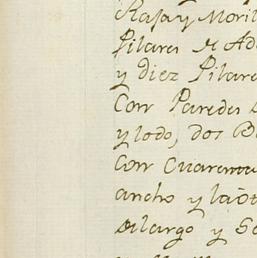 Rafa y Moril
Pilares de Ado
y diez Pilare
Con Paredes
y lodo, dos
con Cuarenta
ancho y la
de largo y